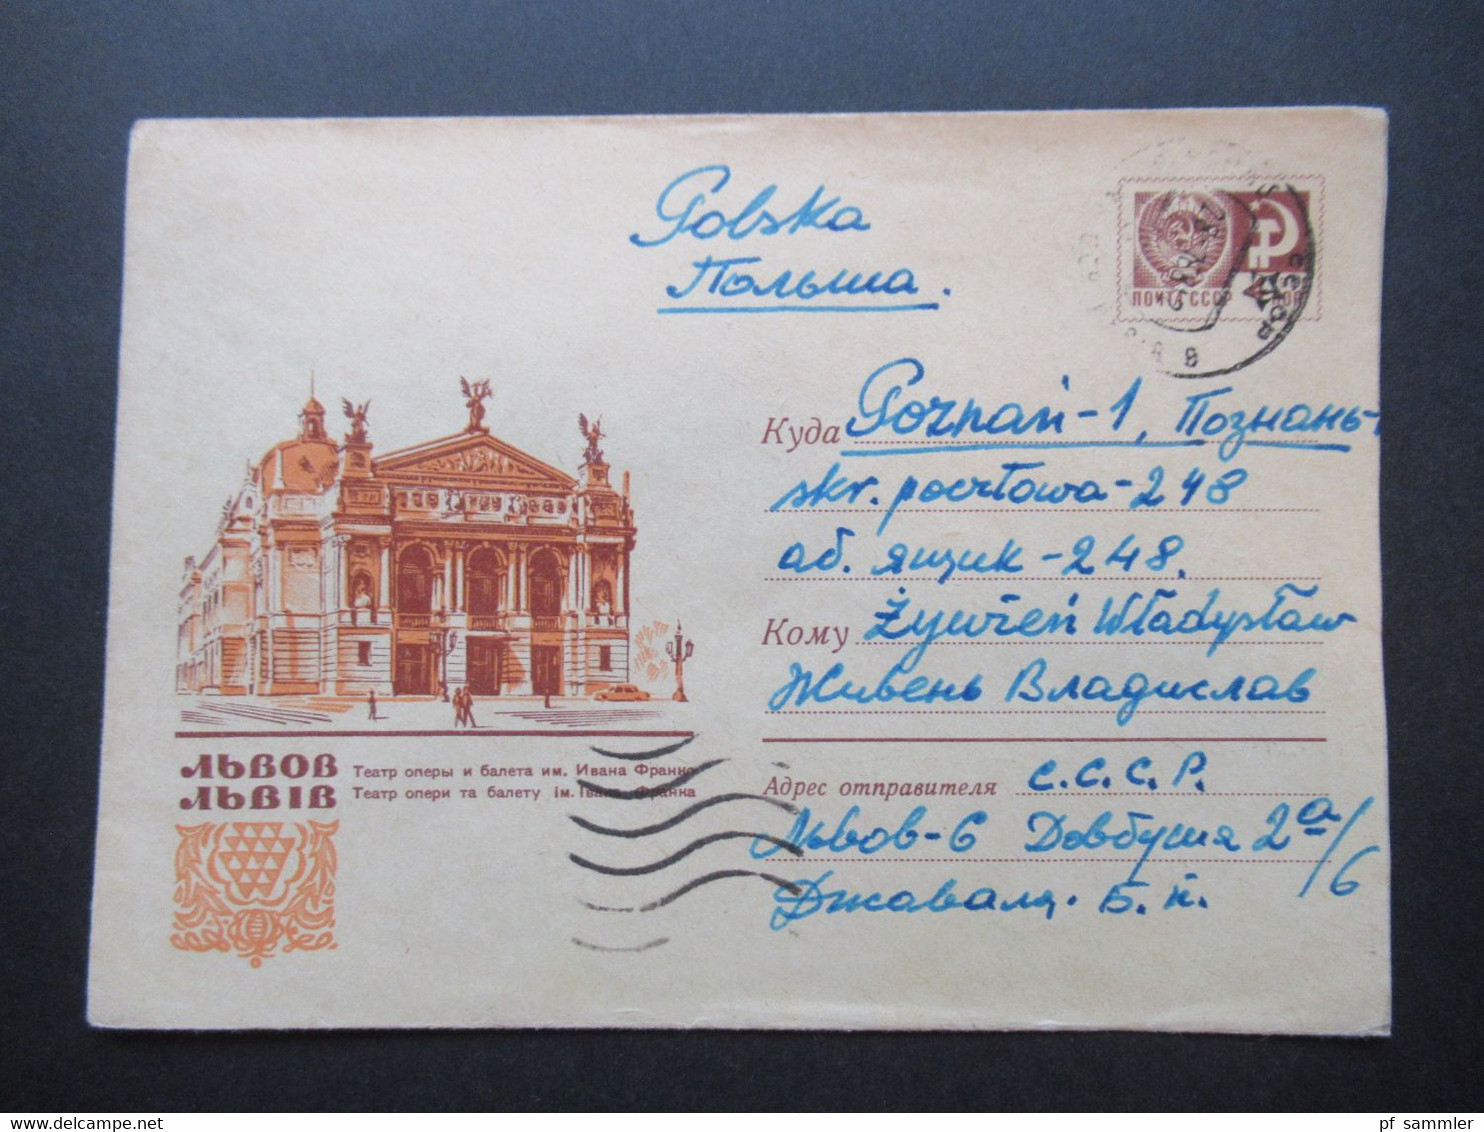 Polska
Польша.
ПОЧТА СССР
Куда Poznań-1, Познань-1
skr. pocztowa-248
аб. ящик-248.
Кому Żywień Władysław
Живень Владислав
ЛЬВОВ Театр оперы и балета им. Ивана Франко
ЛЬВІВ Театр опери та балету ім. Івана Франка
Адрес отправителя С.С.С.Р.
Львов-6 Довбуша 2а/6
Б. К.
pf sammler